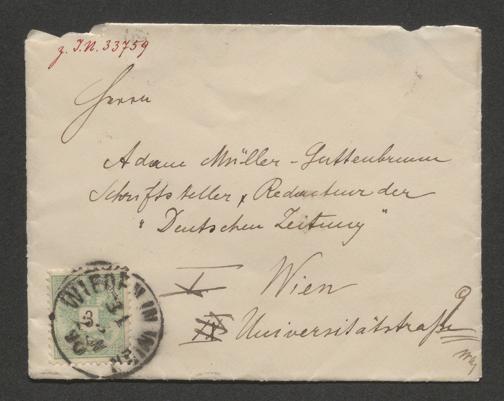 z. I.N. 33759
Herrn
Adam Müller-Guttenbrunn
Schriftsteller, Redacteur der
"Deutschen Zeitung"
Wien
IX Universitätstraße
WIEDEN IN WIEN
3